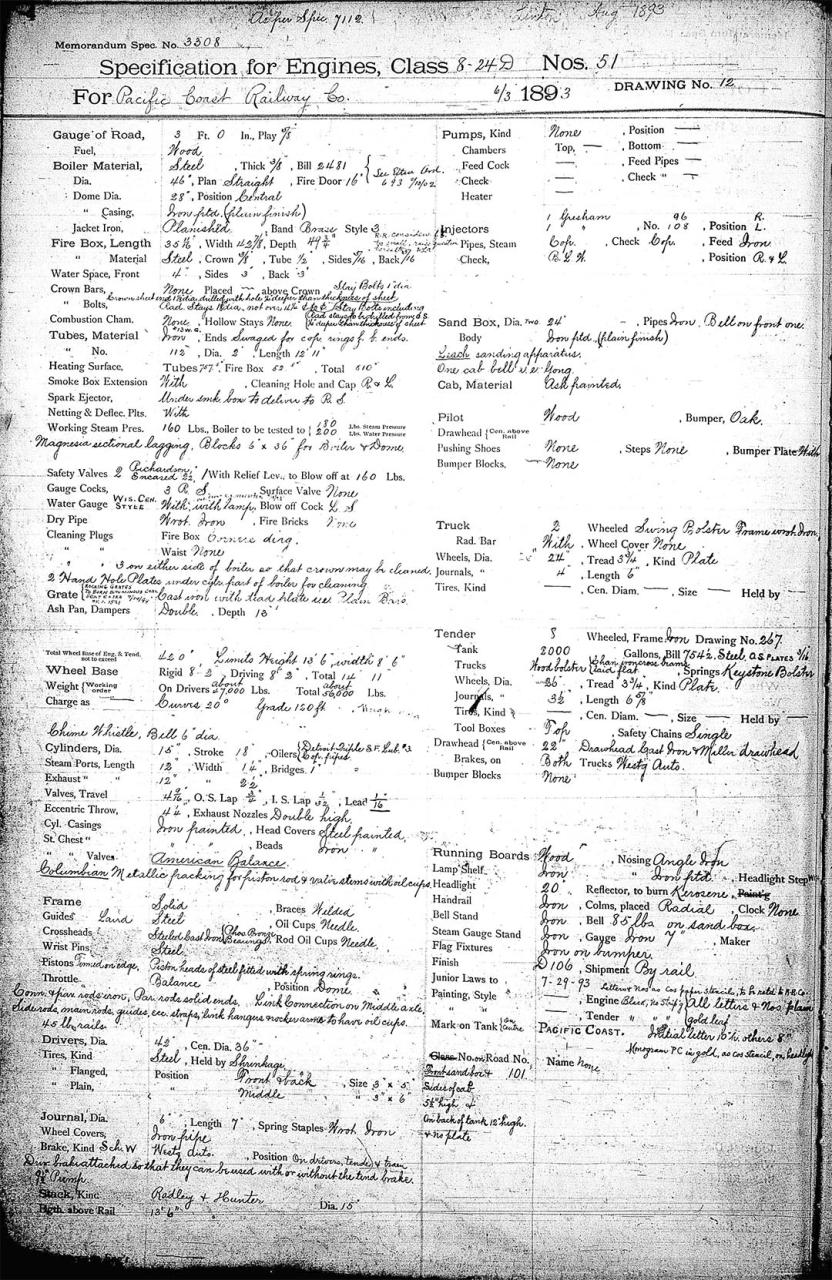 As per Spec. 7112.
Linton Aug 1893
Memorandum Spec. No. 3308
Specification for Engines, Class 8-24 D Nos. 51
For Pacific Coast Railway Co. 6/3 1893 DRAWING No. 12
Gauge of Road, 3 Ft. 0 In., Play
Fuel, Wood
Boiler Material, Steel, Thick 3/8, Bill 2481
Dia. 46", Plan Straight, Fire Door 16"
Dome Dia. 28", Position Central
" Casing, Iron ptd. (plain finish)
Jacket Iron, Planished, Band Brass Style 3
Fire Box, Length 35 1/2, Width 42 7/8, Depth 49 1/4"
" Material Steel, Crown 3/8, Tube 1/2, Sides 5/16, Back 5/16
Water Space, Front 4", Sides 3", Back 3"
Crown Bars, None Placed above Crown Stay Bolts 1" dia.
" Bolts,
Combustion Cham. None, Hollow Stays None
Tubes, Material Iron, Ends Swaged for cop rings f. & b. ends.
" No. 112, Dia. 2", Length 12' 11"
Heating Surface, Tubes 757, Fire Box 53, Total 810
Smoke Box Extension With, Cleaning Hole and Cap R & L.
Spark Ejector, Under smk box to deliver to R S
Netting & Deflec. Plts. With
Working Steam Pres. 160 Lbs., Boiler to be tested to 180 Lbs. Steam Pressure 200 Lbs. Water Pressure
Magnesia sectional lagging, Blocks 6" x 36" for Boiler & Dome.
Safety Valves 2 Richardson, Encased 2 1/2, 1 With Relief Lev., to Blow off at 160 Lbs.
Gauge Cocks, 3 R S, Surface Valve None
Water Gauge WIS. CEN. STYLE With, with lamp, Blow off Cock L S
Dry Pipe Wrot. Iron, Fire Bricks None
Cleaning Plugs Fire Box Corners diag.
" " Waist None
" " 3 on either side of boiler so that crown may be cleaned.
2 Hand Hole Plates under cyl. part of boiler for cleaning
Grate Cast iron with dead plate see Plain Bars.
Ash Pan, Dampers Double, Depth 13"
Total Wheel Base of Eng. & Tend. not to exceed 42' 0" Limits Height 13' 6", width 8' 6"
Wheel Base Rigid 8' 2", Driving 8' 2" Total 14' 11"
Weight Working order On Drivers about 47,000 Lbs. Total about 56,000 Lbs.
Charge as Curves 20° Grade 120 ft.
Chime Whistle, Bell 6" dia.
Cylinders, Dia. 15", Stroke 18", Oilers Detroit Triple S.F. Lub. #3 Cop. pipes
Steam Ports, Length 12", Width 1 1/4", Bridges 1"
Exhaust " " 12" " 2 1/2"
Valves, Travel, O. S. Lap, I. S. Lap 1/32, Lead 1/16
Eccentric Throw, Exhaust Nozzles Double high.
Cyl. Casings Iron painted, Head Covers Steel painted.
St. Chest " " Beads Iron "
" " Valves American Balance.
Columbian Metallic packing for piston rod & valve stems with oil cups.
Frame Solid, Braces Welded
Guides Laird Steel, Oil Cups Needle,
Crossheads Steeled Cast Iron Phos. Bronze Bearings, Rod Oil Cups Needle,
Wrist Pins, Steel,
Pistons Turned on edge, Piston heads of steel fitted with spring rings.
Throttle Balance, Position Dome
Conn. & par. rods iron, Par. rods solid ends. Link Connection on Middle axle
Side rods, main rods, guides, ecc. straps, link hangers rocker arms to have oil cups.
45 lb. rails.
Drivers, Dia. 42", Cen. Dia. 36"
Tires, Kind Steel, Held by Shrinkage
" Flanged, Position Front & back, Size 3" x 5"
" Plain, " Middle " 3" x 6"
Journal, Dia. 6", Length 7", Spring Staples Wrot Iron
Wheel Covers, Iron pipe
Brake, Kind Sch. W Westg Auto., Position On drivers, tender, & train
Driv. brake attached so that they can be used with or without the tend brake.
9 1/2 Pump.
Stack, Kind Radley & Hunter
Hgth. above Rail 13' 6" Dia. 15"
Pumps, Kind None, Position
Chambers Top, Bottom
Feed Cock, Feed Pipes
Check, Check "
Heater
Injectors 1 Gresham 96 R.
1 " , No. 108, Position L.
Pipes, Steam Cop., Check Cop., Feed Iron
Check, B. L. W., Position R & L.
Sand Box, Dia. TWO 24", Pipes Iron. Bell on front one.
Body Iron ptd. (plain finish)
Leach sanding apparatus.
One cab bell i.e. Gong.
Cab, Material Ash painted.
Pilot Wood, Bumper, Oak.
Drawhead Cen. above Rail
Pushing Shoes None, Steps None, Bumper Plate With
Bumper Blocks. None
Truck 2 Wheeled Swing Bolster Frame wrot. Iron,
Rad. Bar With, Wheel Cover None
Wheels, Dia. 24", Tread 3 3/4, Kind Plate
Journals, " 4", Length 6"
Tires, Kind, Cen. Diam., Size Held by
Tender 8 Wheeled, Frame Iron Drawing No. 267.
Tank 2000 Gallons, Bill 7542, Steel, O.S. PLATES 3/16
Trucks Wood bolster, Springs Keystone Bolster
Wheels, Dia. 26", Tread 3 3/4, Kind Plate.
Journals, " 3 1/2", Length 6 5/8
Tires, Kind, Cen. Diam., Size Held by
Tool Boxes Top, Safety Chains Single
Drawhead Cen. above Rail 22" Drawhead Cast Iron & Miller drawhead
Brakes, on Both Trucks Westg Auto.
Bumper Blocks None
Running Boards Wood, Nosing Angle Iron
Lamp Shelf, Iron " Iron ptd., Headlight Step
Headlight 20" Reflector, to burn Kerosene,
Handrail Iron, Colms, placed Radial, Clock None
Bell Stand Iron, Bell 85 lbs on sand box
Steam Gauge Stand Iron, Gauge Iron 7", Maker
Flag Fixtures Iron on bumper.
Finish D 106, Shipment By rail.
Junior Laws to 7-29-93
Painting, Style, Engine All letters & Nos. plain
" " , Tender " " gold leaf
Mark on Tank On Centre PACIFIC COAST. Initial letter 10" h. others 8"
Monogram PC in gold, as cos stencil, on headlight
Class No. on Road No. Name none.
Front sand box & 101.
Sides of cab
5 1/2" high &
On back of tank 12" high.
& no plate